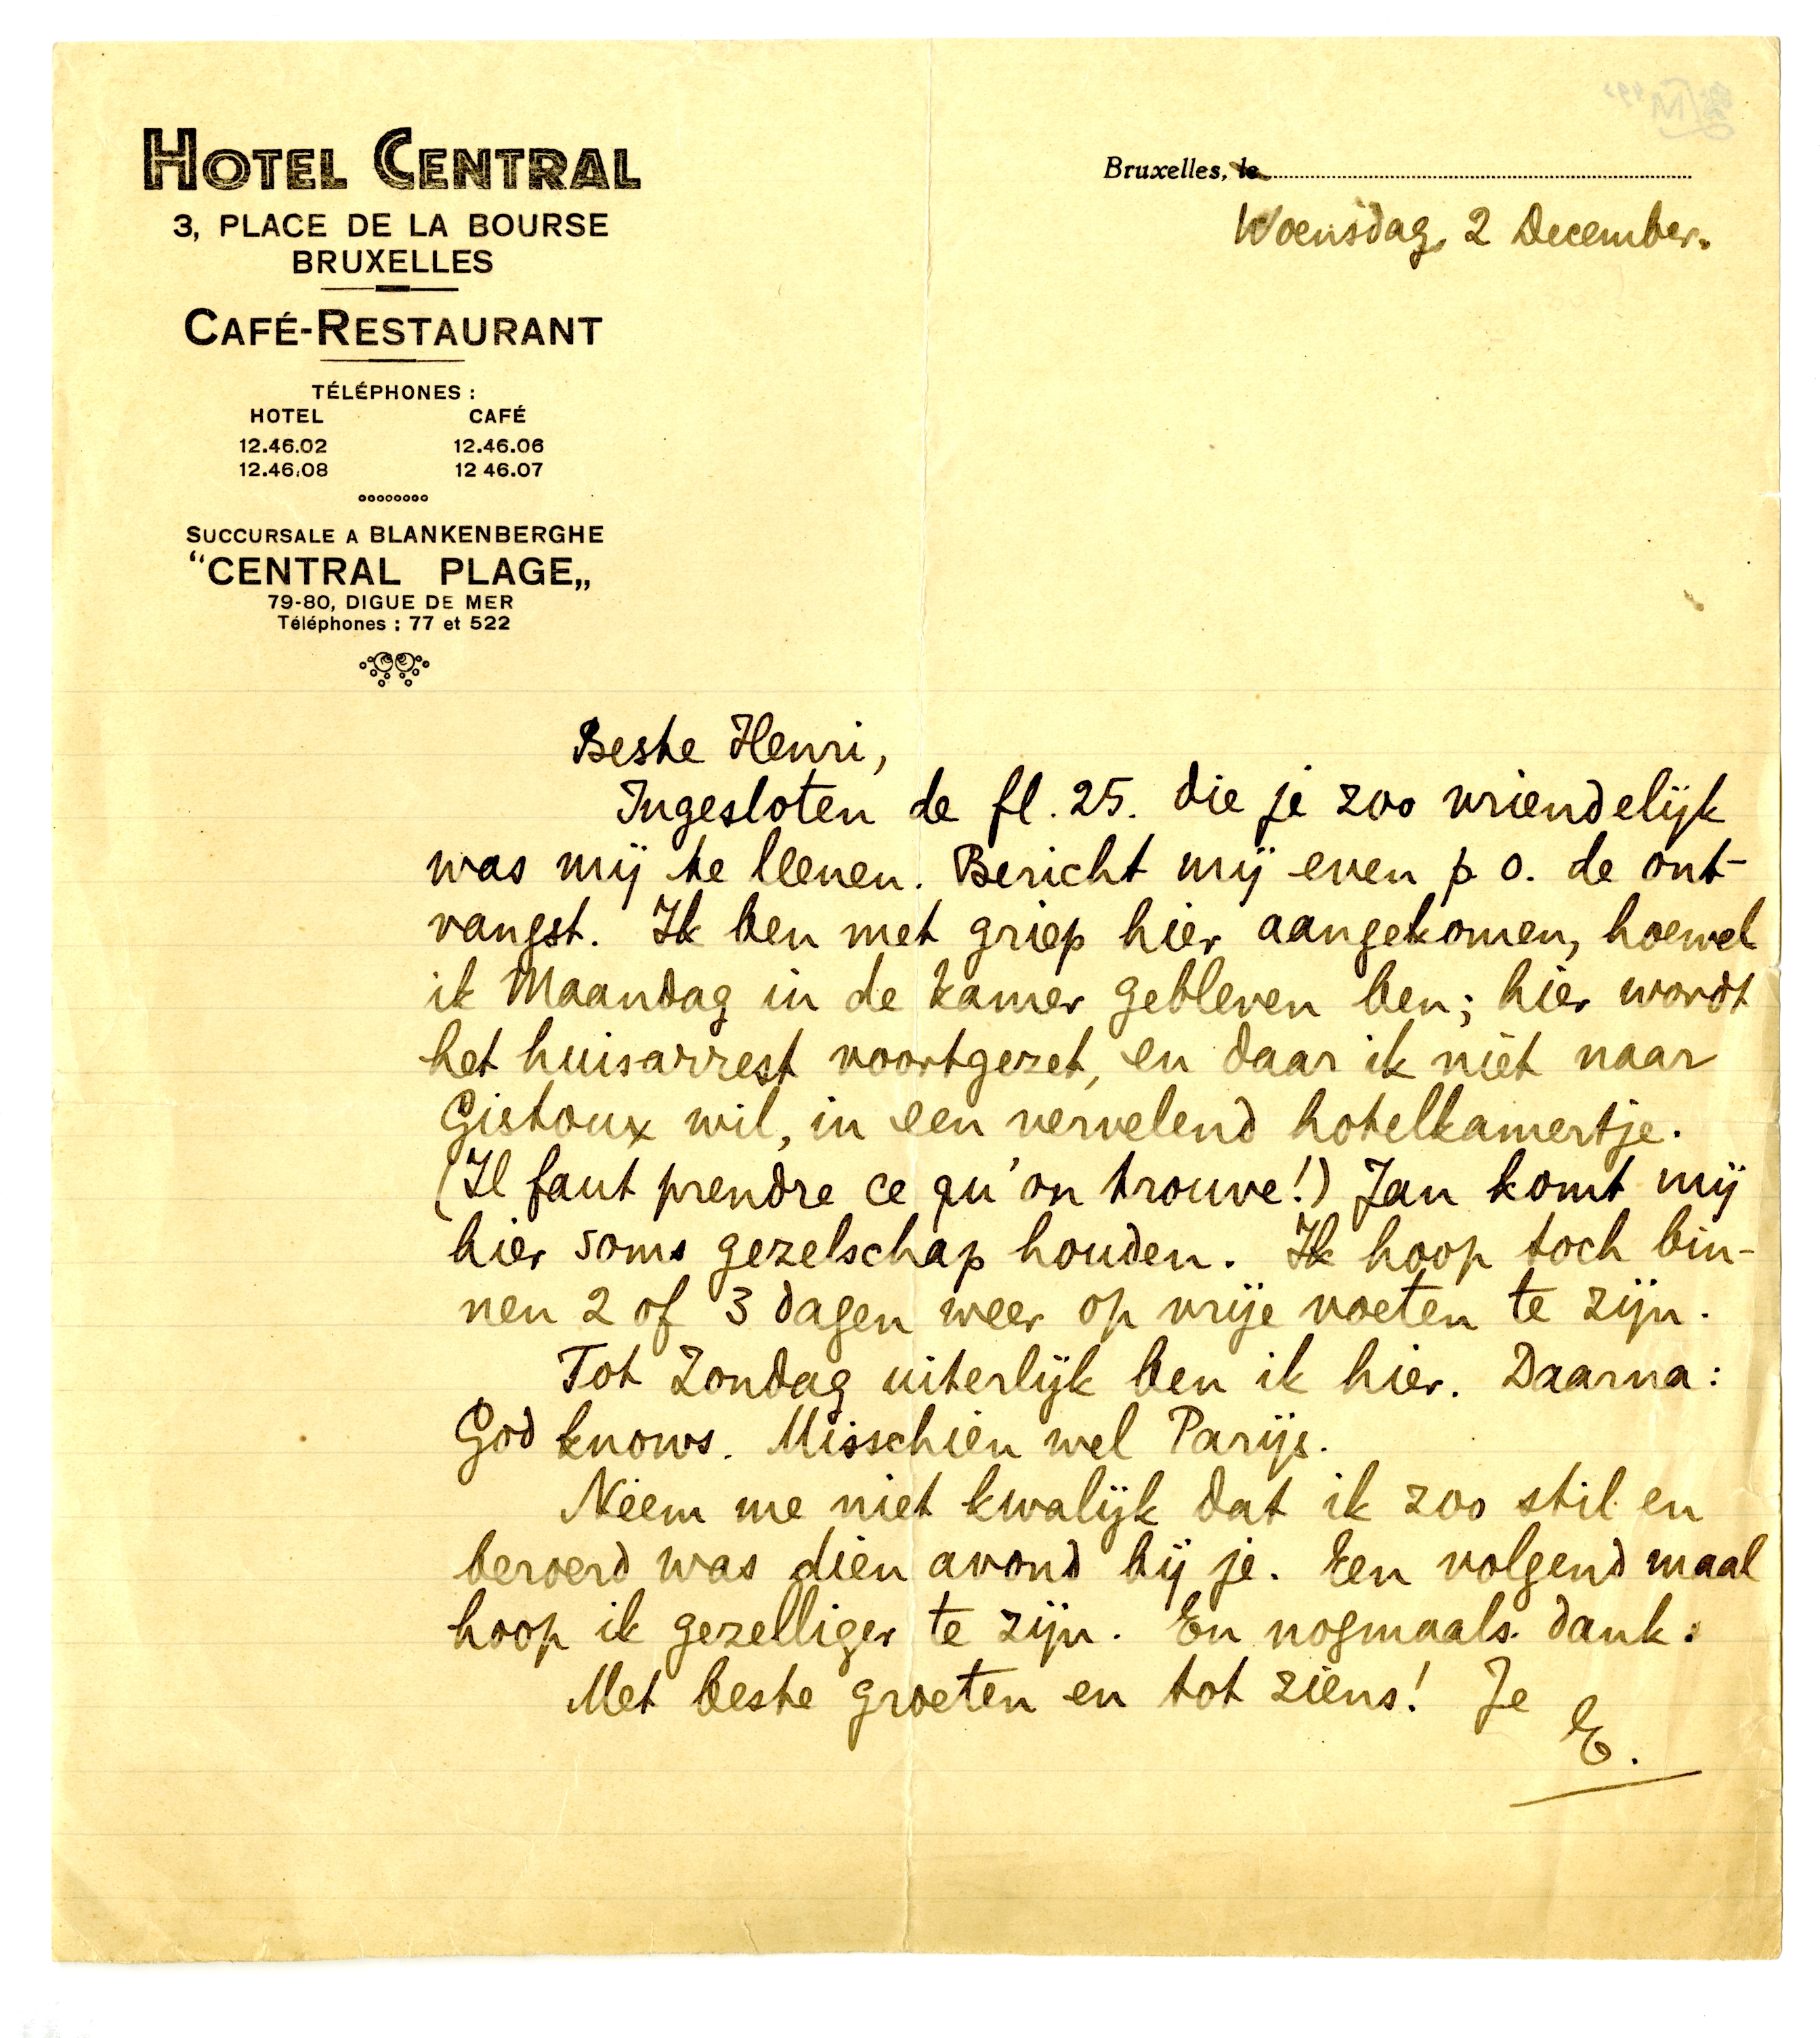 HOTEL CENTRAL
3, PLACE DE LA BOURSE
BRUXELLES
CAFÉ-RESTAURANT
TÉLÉPHONES :
HOTEL CAFÉ
12.46.02 12.46.06
12.46.08 12 46.07
SUCCURSALE A BLANKENBERGHE
“CENTRAL PLAGE„
79-80, DIGUE DE MER
Téléphones : 77 et 522
Bruxelles, le
Woensdag, 2 December.
Beste Henri,
Ingesloten de fl. 25. die je zoo vriendelijk
was mij te leenen. Bericht mij even p. o. de ont-
vangst. Ik ben met griep hier aangekomen, hoewel
ik Maandag in de kamer gebleven ben; hier wordt
het huisarrest voortgezet, en daar ik niet naar
Gistoux wil, in een vervelend hotelkamertje.
(Il faut prendre ce qu'on trouve!) Jan komt mij
hier soms gezelschap houden. Ik hoop toch bin-
nen 2 of 3 dagen weer op vrije voeten te zijn.
Tot Zondag uiterlijk ben ik hier. Daarna:
God knows. Misschien wel Parijs.
Neem me niet kwalijk dat ik zoo stil en
beroerd was dien avond bij je. Een volgend maal
hoop ik gezelliger te zijn. En nogmaals dank.
Met beste groeten en tot ziens! Je
E.